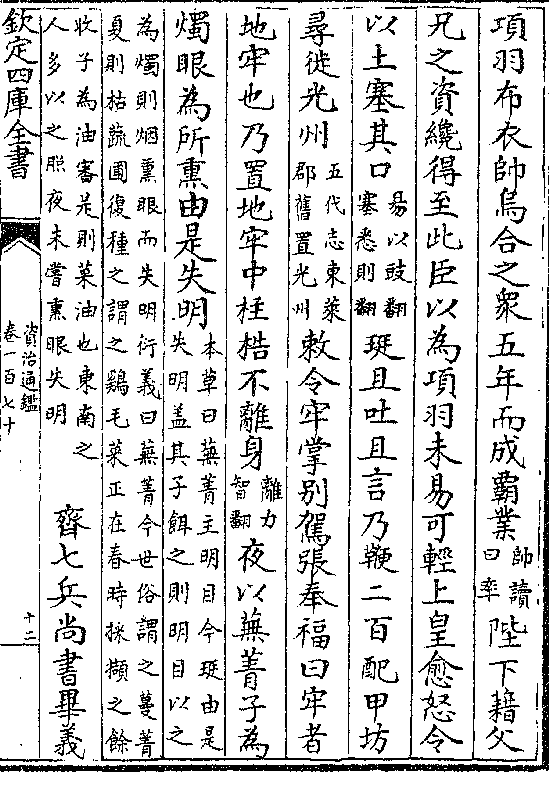 項羽布衣帥烏合之衆五年而成霸業帥讀曰率陛下藉父
兄之資纔得至此臣以為項羽未易可輕上皇愈怒令
以土塞其口易以豉翻塞悉則翻珽且吐且言乃鞭二百配甲坊
尋徙光州五代志東萊郡舊置光州敕令牢掌别駕張奉福曰牢者
地牢也乃置地牢中桎梏不離身離力智翻夜以蕪菁子為
燭眼為所熏由是失明本草曰蕪菁主明目今珽由是失明盖其子餌之則明目以之
為燭則烟熏眼而失明衍義曰蕪菁今世俗謂之蔓菁夏則枯蔬圃復種之謂之鷄毛菜正在春時採擷之餘
收子為油審是則菜油也東南之人多以之照夜未嘗熏眼失明齊七兵尚書畢義
欽定四庫全書
資治通鑑
卷一百七十
十二